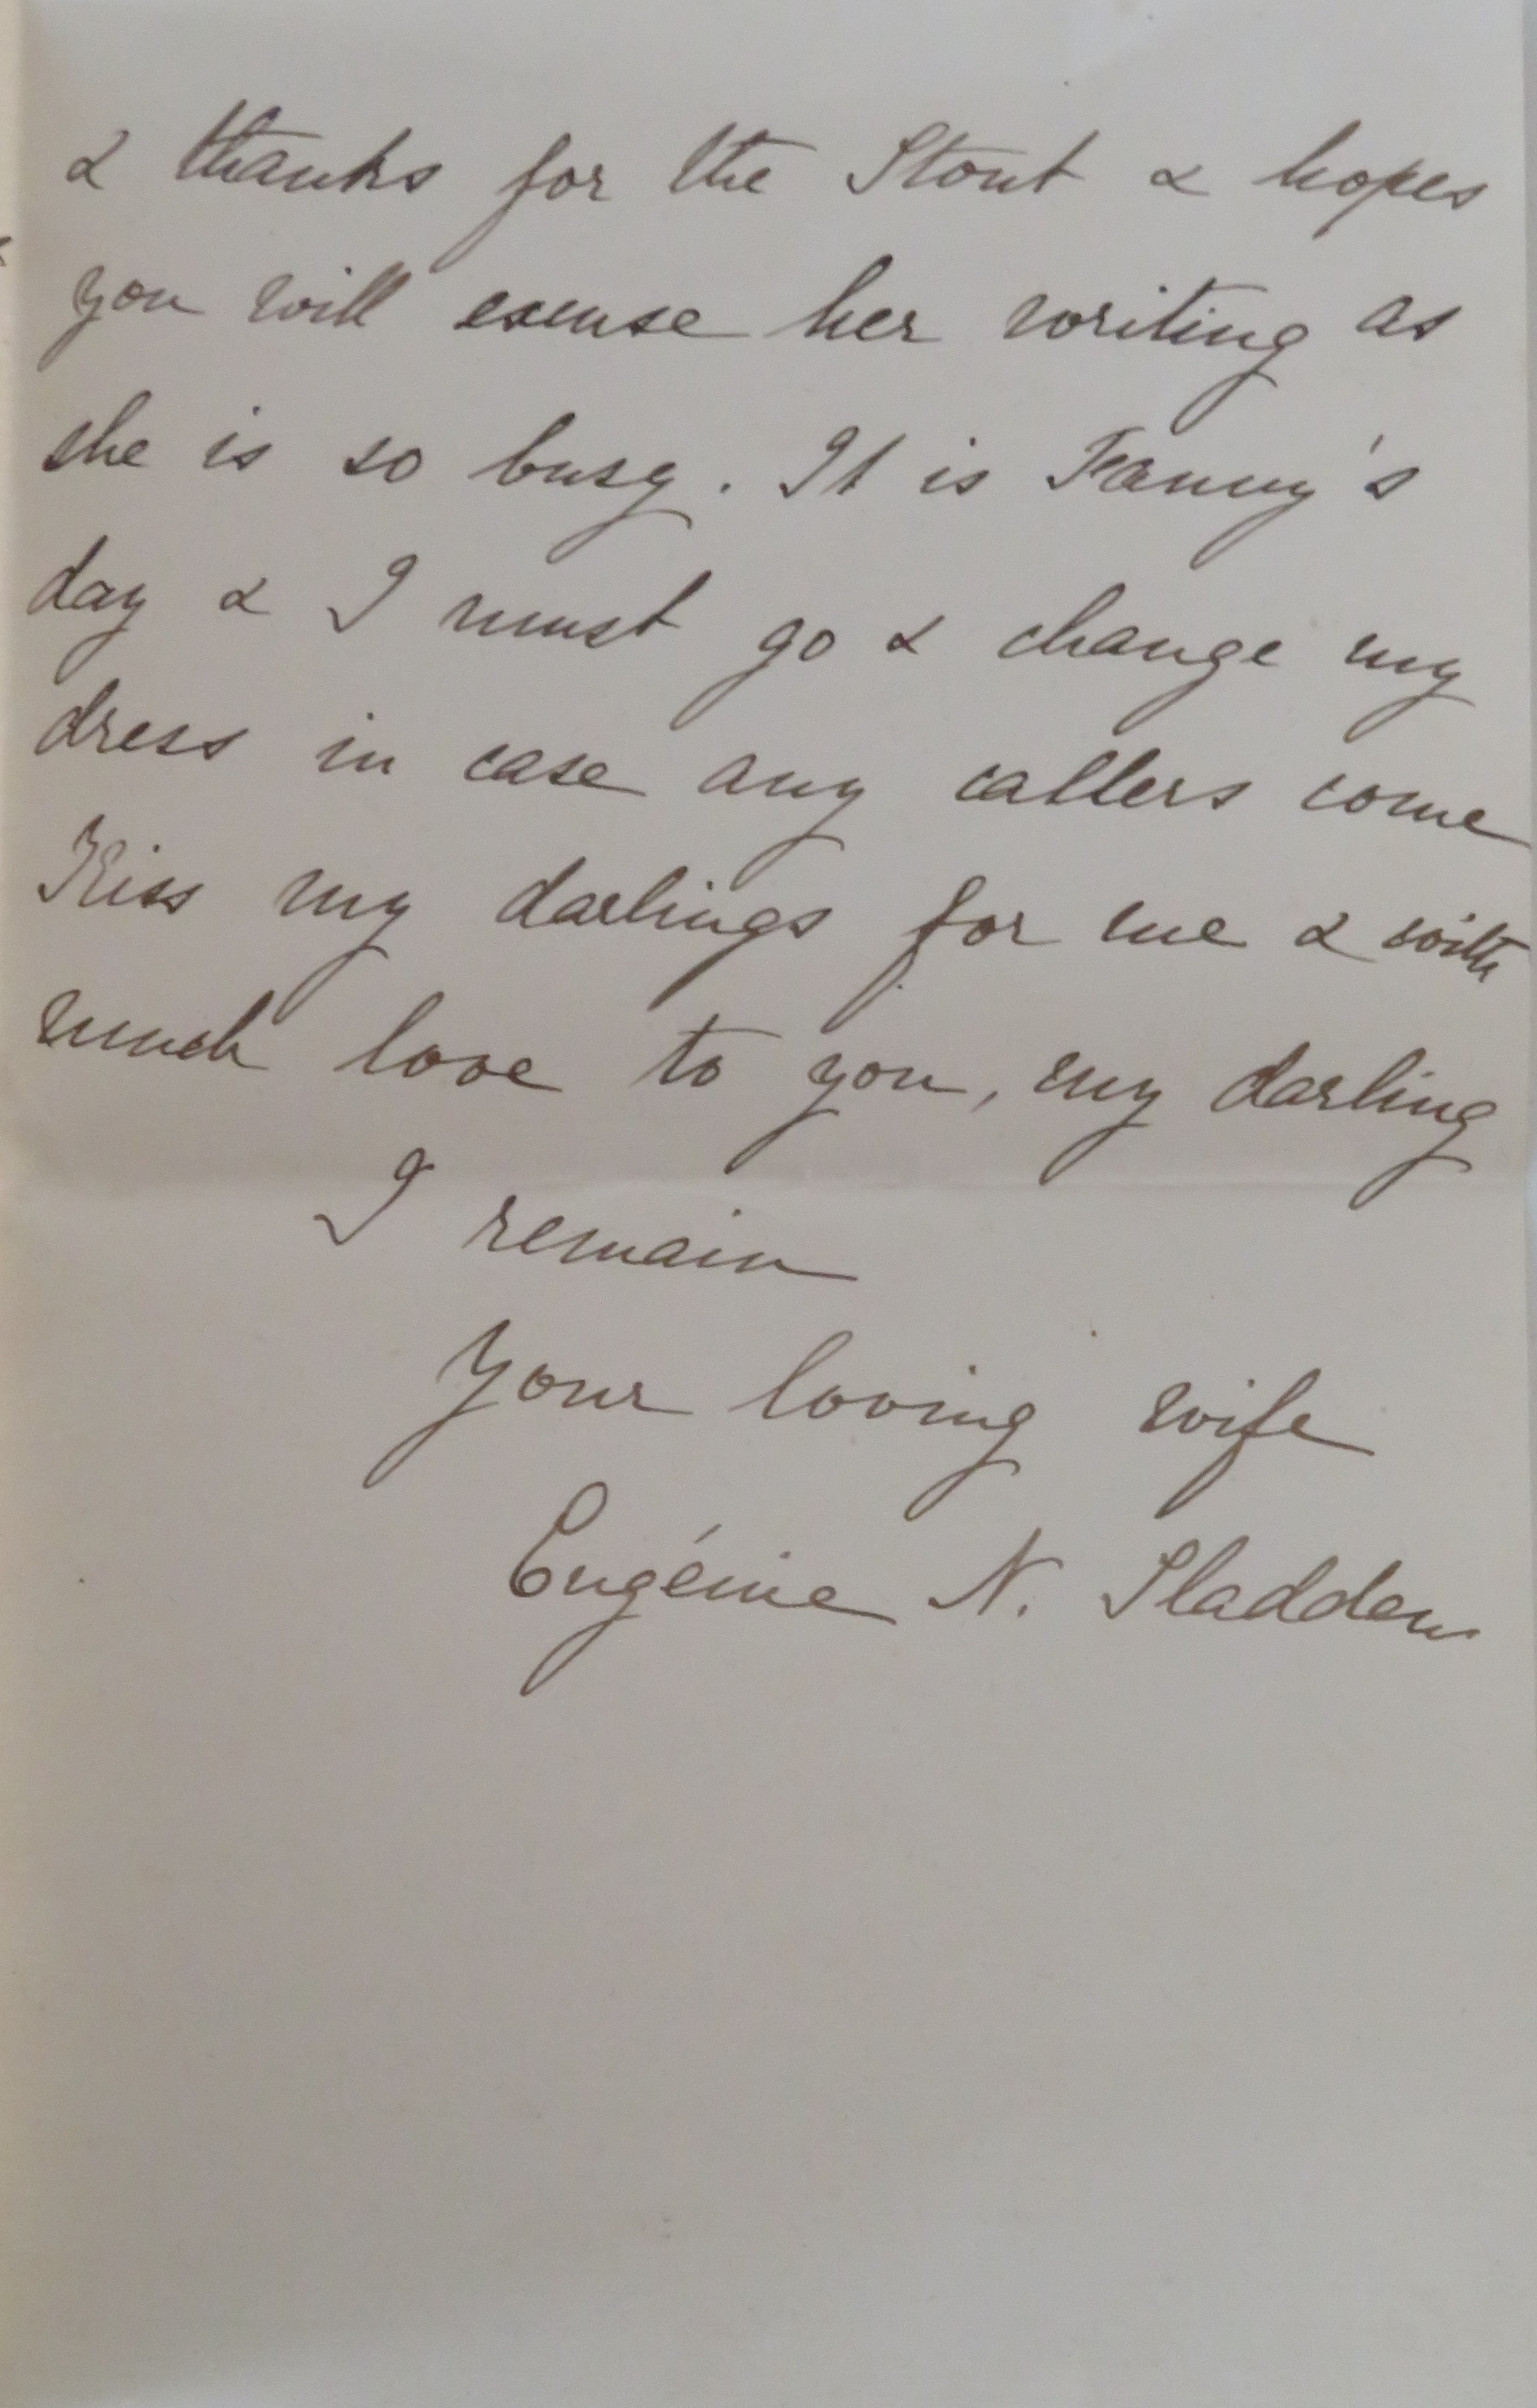 & thanks for the Stout & hopes
you will excuse her writing as
she is so busy. It is Fanny's
day & I must go & change my
dress in case any callers come
Kiss my darlings for me & with
much love to you, my darling
I remain
Your loving wife
Eugénie N. Sladden